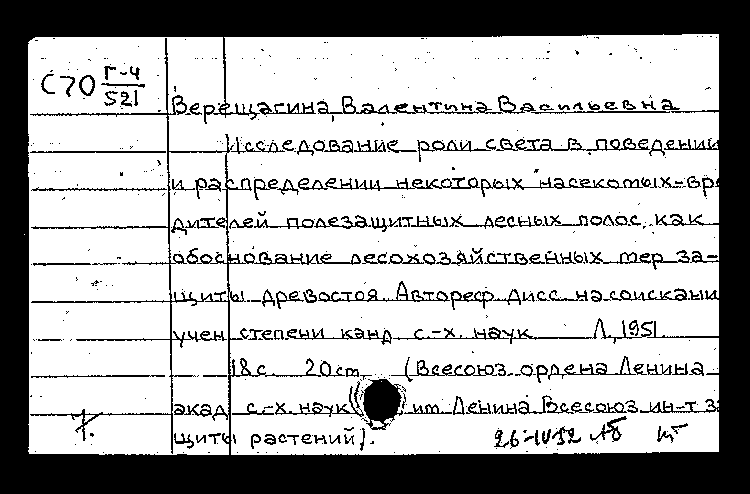 С70 Г-4
521
Верещагина, Валентина Васильевна
Исследование роли света в поведении
и распределении некоторых насекомых-вре
дителей полезащитных лесных полос, как
обоснование лесохозяйственных мер за-
щиты древостоя. Автореф. дисс. на соискани
учен степени канд с.-х. наук Л., 1951.
18 с. 20 cm (Всесоюз. ордена Ленина
акад с.-х. наук им. Ленина. Всесоюз. ин-т за
щиты растений).
26-IV-52